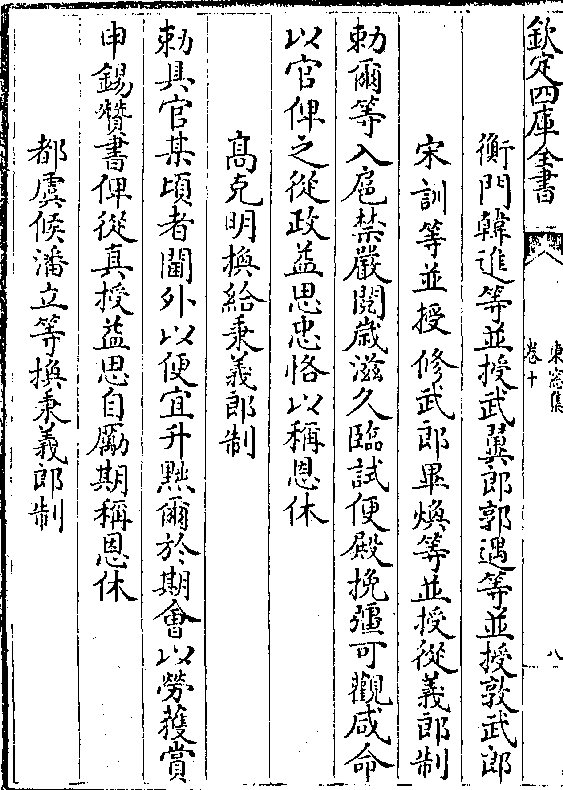 欽定四庫全書
東窻集
卷十
八
衡門韓進等並授武翼郎郭遇等並授敦武郎
宋訓等並授修武郎畢煥等並授從義郎制
勅爾等入扈禁嚴閱歲滋久臨試便殿挽彊可觀咸命
以官俾之從政益思忠恪以稱恩休
高克明換給秉義郎制
勅具官某頃者閫外以便宜升黜爾於期會以勞獲賞
申錫贊書俾從真授益思自勵期稱恩休
都虞候潘立等換秉義郎制